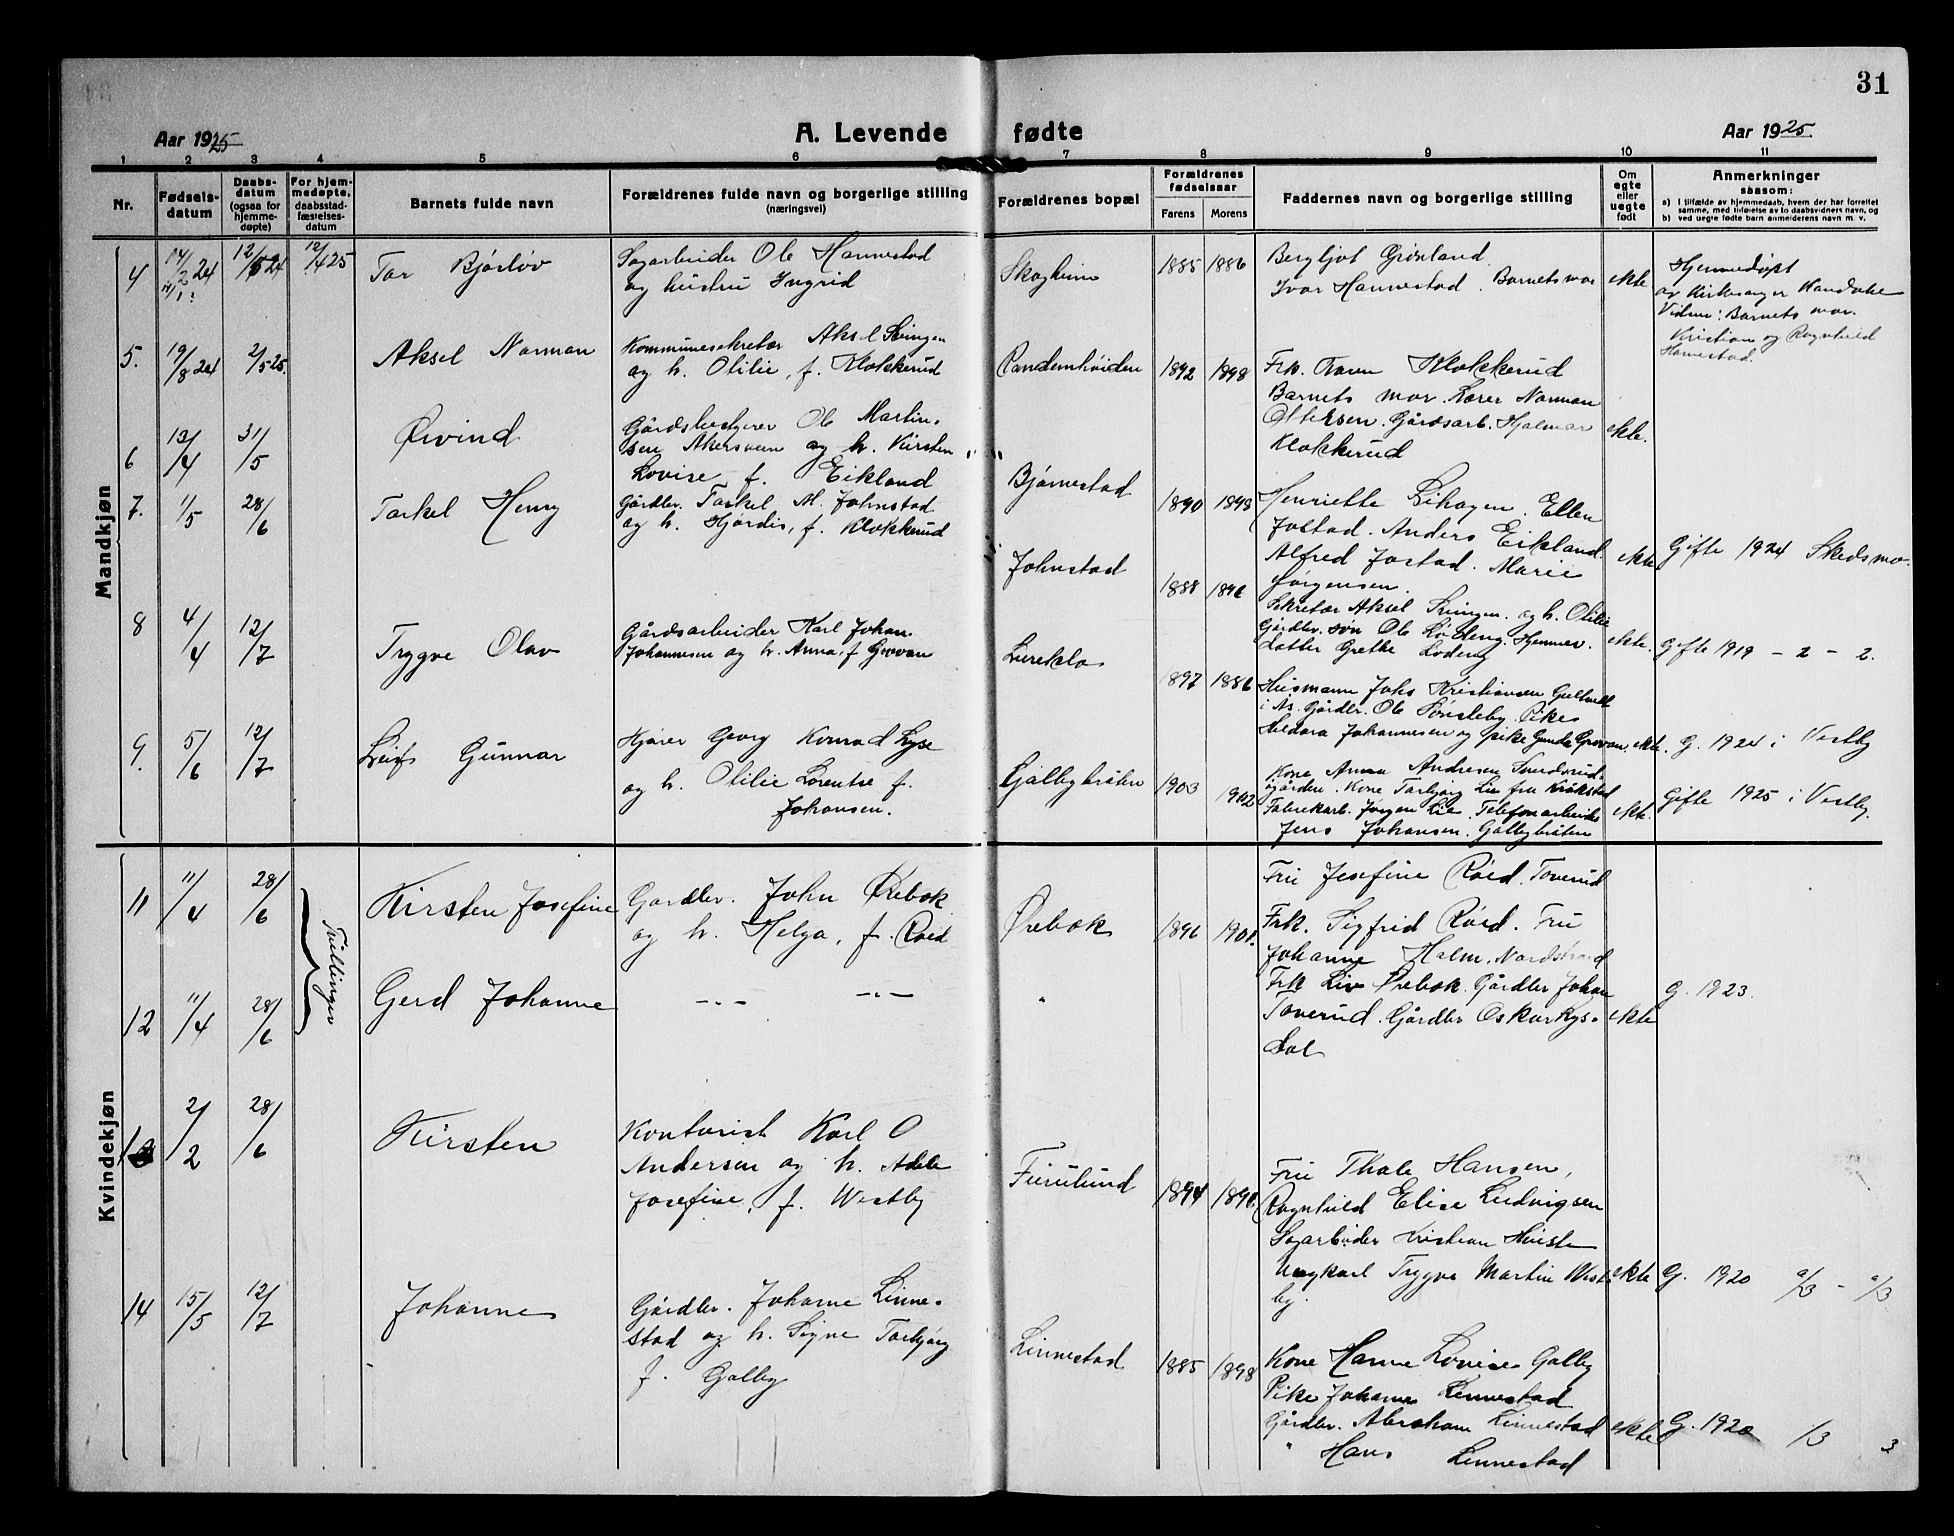 31
Aar 1925
A. Levende fødte
Aar 1925
1 2 3 4 5 6 7 8 9 10 11
Nr.
Fødsels-
datum
Daabs-
datum
(ogsaa for
hjemme-
døpte)
For hjem-
medøpte,
daabsstad-
fæstelses-
datum
Barnets fulde navn
Forældrenes fulde navn og borgerlige stilling
(næringsvei)
Forældrenes bopæl
Forældrenes
fødselsaar
Farens Morens
Faddernes navn og borgerlige stilling
Om
egte
eller
uegte
født
Anmerkninger
saasom:
a) I tilfælde av hjemmedaab, hvem der har forrettet
samme, med tilføielse av to daabsvidners navn, og
b) ved uegte fødte barn anmelderens navn m. v.
Mandkjøn
4 14/2 24 12/5 24 12/4 25 Tor Bjørløv
Sagarbeider Ole Hannestad
og hustru Ingrid
Skogheim
1885 1886
Bergljot Grønland
Ivar Hannestad. Barnets mor
ekte
Hjemmedøpt
av Kirkesanger
Vidner: Barnets mor.
Kristian og Ragnhild
Hannestad.
5. 19/8 24 2/5 25. Aksel Norman
Kommunesekretær Aksel
og h. Otilie, f. Klokkerud
1892 1898
Frk. Karen Klokkerud
Barnets mor. Lærer Norman
Ottersen. Gårdsarb. Hjalmar
Klokkerud
ekte.
6 13/4 31/5 Øivind
Gårdsbestyrer Ole Martin-
sen Akersveen og h. Kirsten
Lovise f. Eikland
Bjørnestad
1890 1898
Henriette Lihagen. Ellen
Jostad. Anders Eikland.
Alfred Jostad. Marie
Jørgensen.
ekte
Gifte 1924 Skedsmo.
7. 1/5 28/6 Torkel Henry
Gårdbr. Torkel M. Johnstad
og h. Hjørdis, f. Klokkerud
Johnstad
1888 1896
Sekretær Aksel og h. Otilie
Gårdbr. søn Ole Lødeng. Hjemmev.
datter Grethe Lodeng
ekte.
Gifte 1919 – 2 – 2.
8 4/4 12/7 Trygve Olav
Gårdsarbeider Karl Johan
Johannesen og h. Anna, f. Grovan
1897 1886
Husmann Johs Kristiansen
i Ås. Gårdbr. Ole Sønsteby. Pike
Hedara Johannesen og pike Gunda Grovan.
ekte.
G. 1924 i Vestby
9. 5/6 12/7 Leif Gunnar
Kjører Georg Konrad Lyse
og h. Otilie Lorentse f.
Johansen.
Galbybråten
1903 1902
Kone Anna Andresen
gården. Kone Torbjørg Lie fra Kråkstad
Fabrikarb. Jørgen Lie. Telefonarbeider
Jens Johansen. Galbybråten
ekte.
Gifte 1925 i Vestby.
Kvindekjøn
11 11/4 28/6 Kirsten Josefine
Gårdbr. John Ørebek
og h. Helga, f. Røed
Ørebek
1896 1901.
Fru Josefine Røed. Toverud
Frk. Sigfrid Røed. Fru
Johanne Halm. Nordstrand
Frk Liv Ørebek. Gårdbr Johan
Toverud. Gårdbr Oskar Rys-
dal
Trillinger
12 11/4 28/6 Gerd Johanne
—"— —"—
"
ekte
G. 1923.
13 2/2 28/6 Kirsten
Kontorist Karl O
Andersen og h. Adele
Josefine, f. Westby
Furulund
1894 1898
Fru Thale Hansen,
Ragnhild Elise Ludvigsen
Sagarbeider Kristian
Ungkarl Trygve Martin West-
by.
ekte
G. 1920 a/3 – a/3
14 15/5 12/7 Johanne
Gårdbr. Johanne Linne-
stad og h. Signe Torbjørg
f. Galby
Linnestad
1885 1898
Kone Hanne Lovise Galby
Pike Johanne Linnestad
Gårdbr. Abraham Linnestad
" Hans Linnestad
ekte
G. 1920 1/3 3